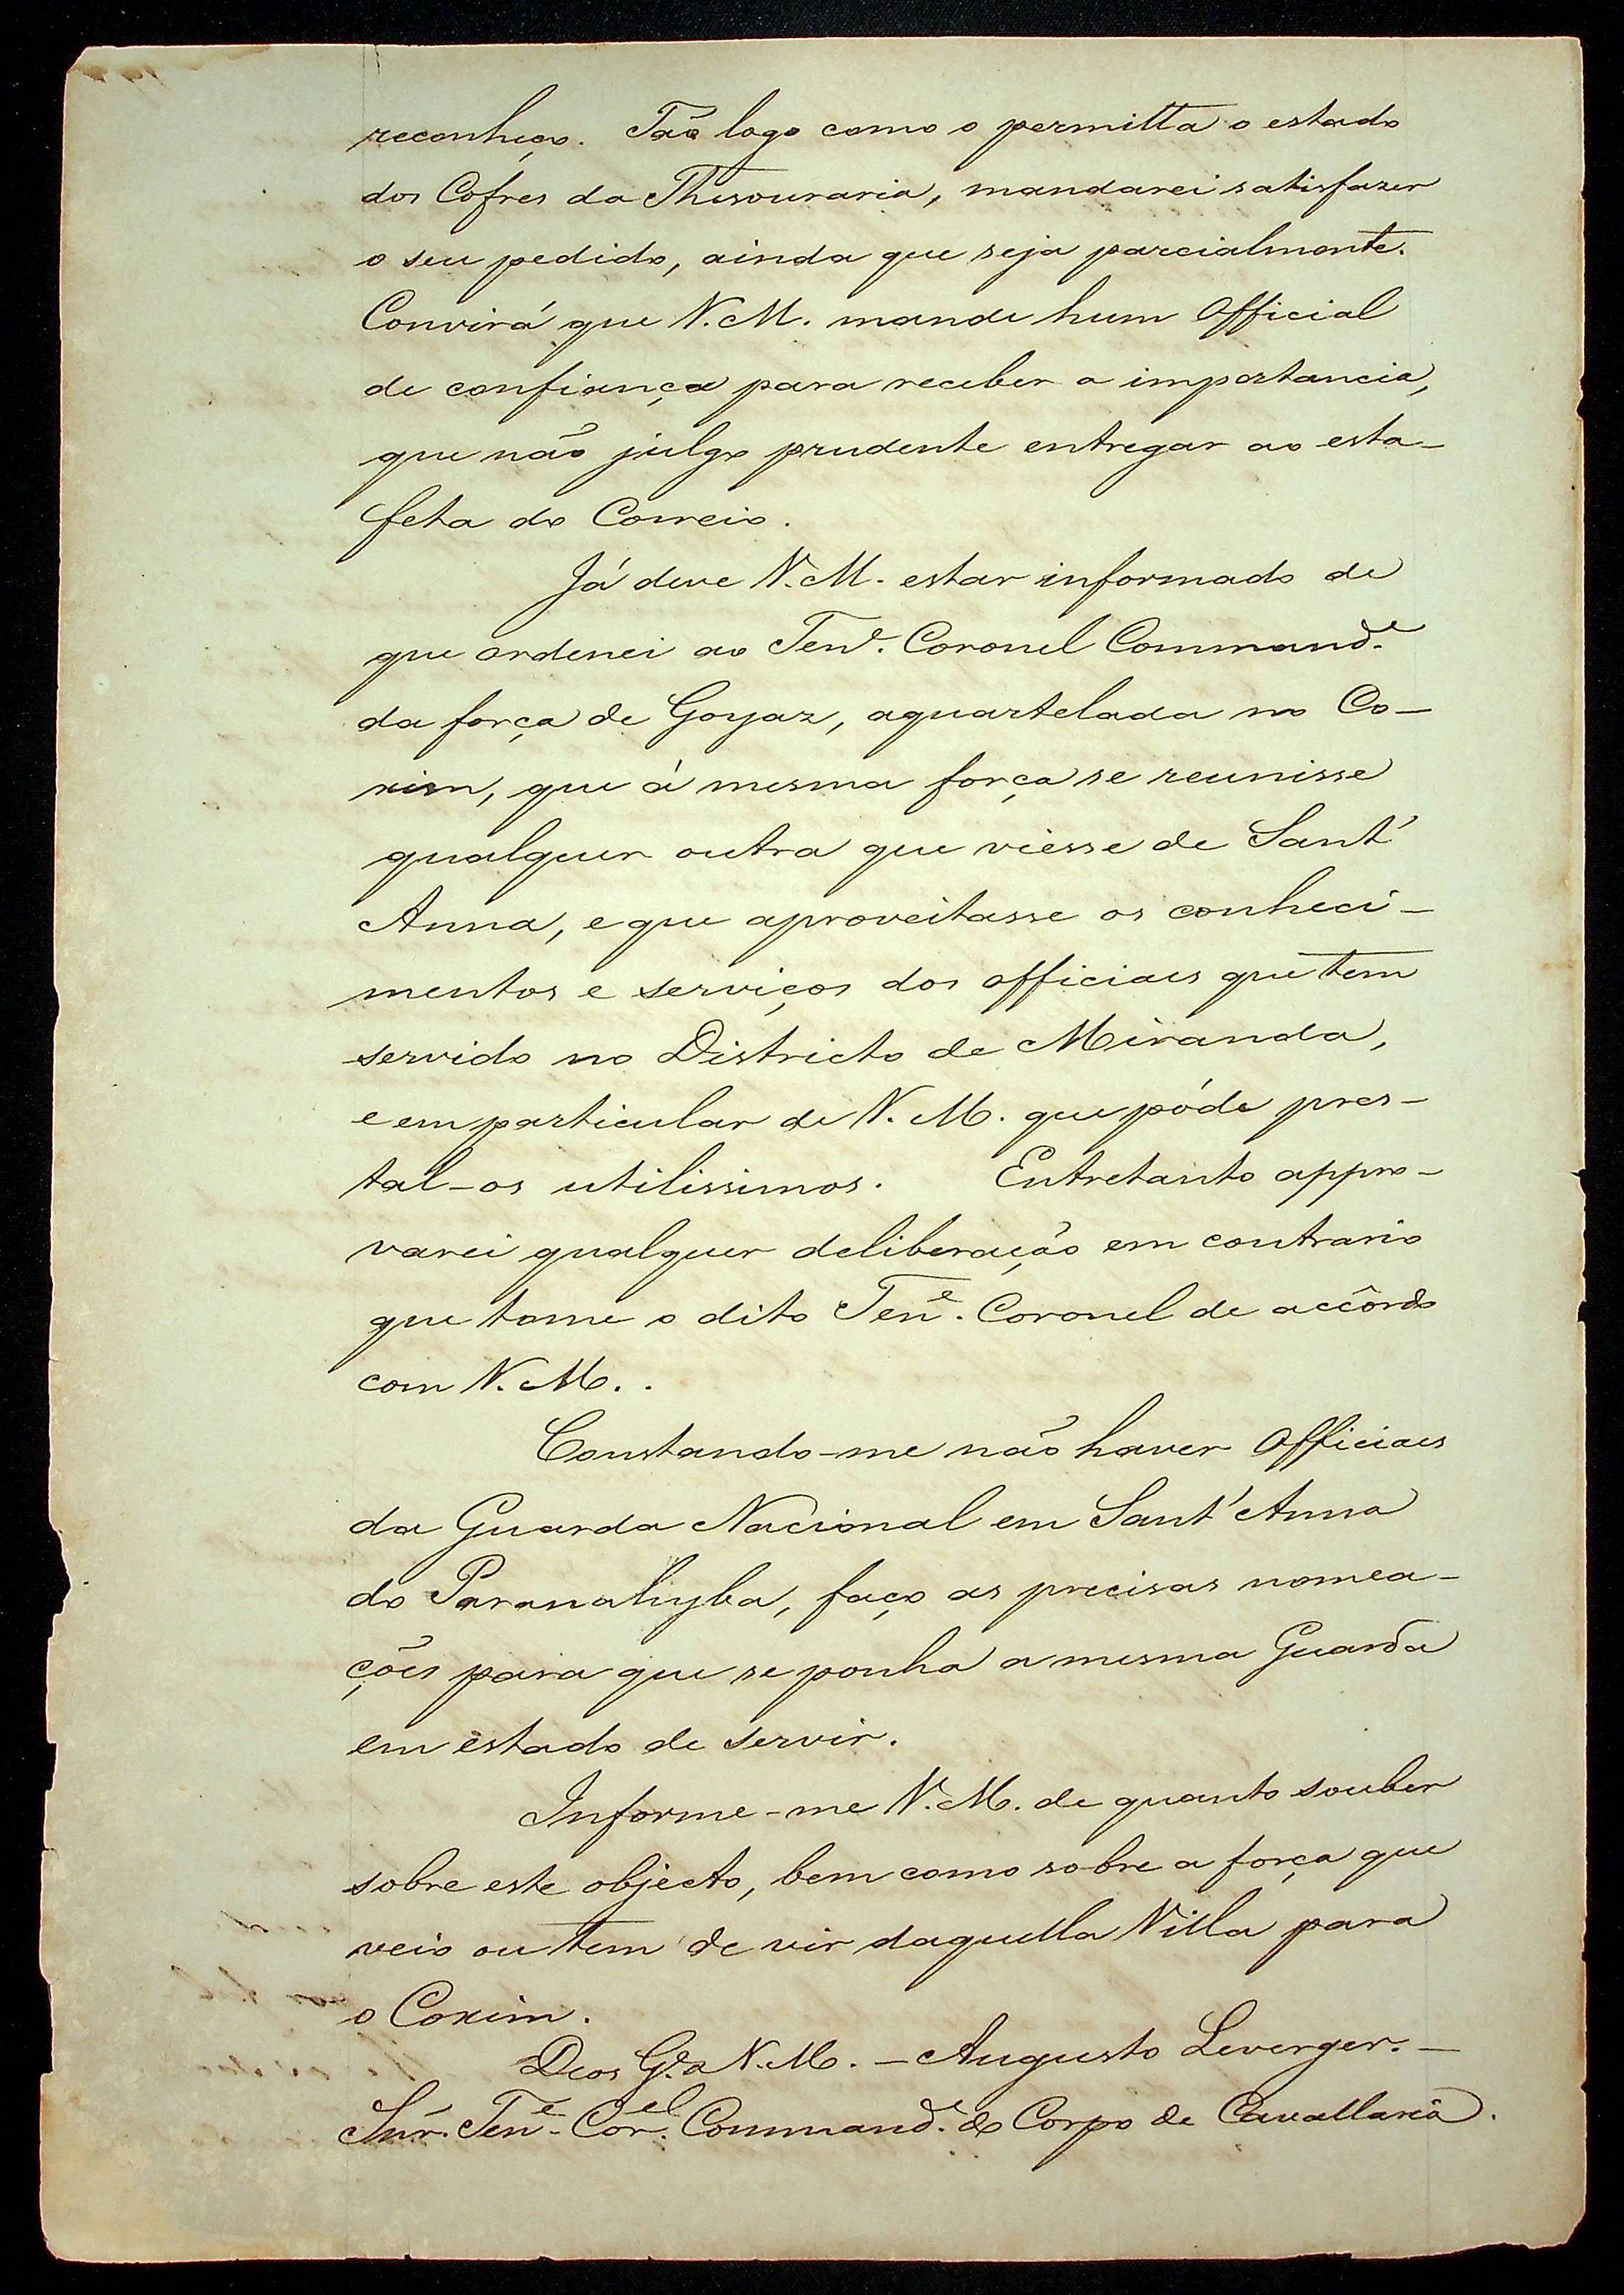 reconheço. Tão logo como o permitta o estado
dos Cofres da Thesouraria, mandarei satisfazer
o seu pedido, ainda que seja parcialmente.
Convirá que V. M. mande hum Official
de confiança para receber a importancia,
que não julgo prudente entregar ao esta-
feta do Correio.
Já deve V. M. estar informado de
que ordenei ao Tenᵉ. Coronel Commandᵉ.
da força de Goyaz, aquartelada no Co-
xim, que à mesma força se reunisse
qualquer outra que viesse de Sant'
Anna, e que aproveitasse os conheci-
mentos e serviços dos officiaes que tem
servido no Districto de Miranda,
e em particular de V. M. que póde pres-
tal-os utilissimos. Entretanto appro-
varei qualquer deliberação em contrario
que tome o dito Tenᵉ. Coronel de accôrdo
com V. M..
Constando-me não haver Officiaes
da Guarda Nacional em Sant'Anna
do Paranahyba, faço as precisas nomea-
ções para que se ponha a mesma Guarda
em estado de servir.
Informe-me V. M. de quanto souber
sobre este objecto, bem como sobre a força que
veio ou tem de vir daquella Villa para
o Coxim.
Deos Gᵈᵉ a V. M. - Augusto Leverger. -
Snr. Tenᵉ- Corᵉˡ. Commandᵉ. do Corpo de Cavallaria.